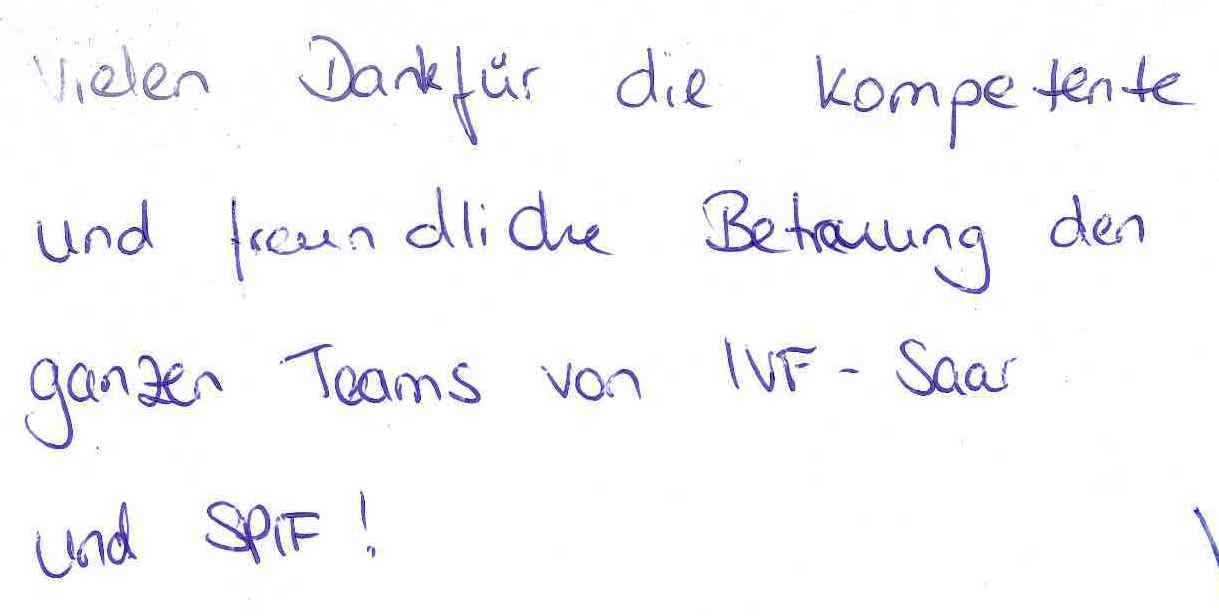 Vielen Dank für die kompetente
und freundliche Betreuung den
ganzen Teams von IVF-Saar
und SPiF!